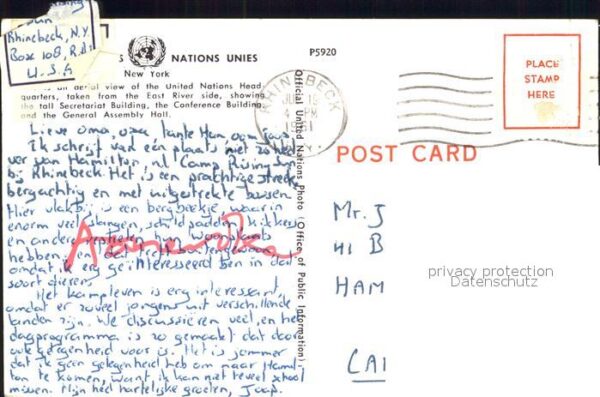 Rhinebeck, N.Y.
Box 108, R.D.1
U.S.A
NATIONS UNIES
P5920
New York
aerial view of the United Nations Head-
quarters, taken from the East River side, showing
the tall Secretariat Building, the Conference Building,
and the General Assembly Hall.
Official United Nations Photo (Office of Public Information)
RHINEBECK
PM
PLACE
STAMP
HERE
POST CARD
Lieve oma, opa, tante Ham, oom Jaap,
Ik schrijf van een plaats niet zo heel
ver van Hamilton, nl Camp Rising Sun
bij Rhinebeck. Het is een prachtige streek
bergachtig en met uitgestrekte bossen.
Hier vlakbij is een bergbeekje, waar in
enorm veel slangen, schildpadden, kikkers
en andere reptielen hun woonplaats
hebben, en dat treft buitengewoon
omdat ik erg geïnteresseerd ben in dat
soort dieren.
Het kampleven is erg interessant,
omdat er zoveel jongens uit verschillende
landen zijn. We discussiëren veel, en het
dagprogramma is zo gemaakt dat daar
ook gelegenheid voor is. Het is jammer
dat ik geen gelegenheid heb om naar Hamil-
ton te komen, want ik kan niet teveel school
missen. Mijn heel hartelijke groeten, Jaap.
Mr. J
41 B
HAM
CAI
privacy protection
Datenschutz